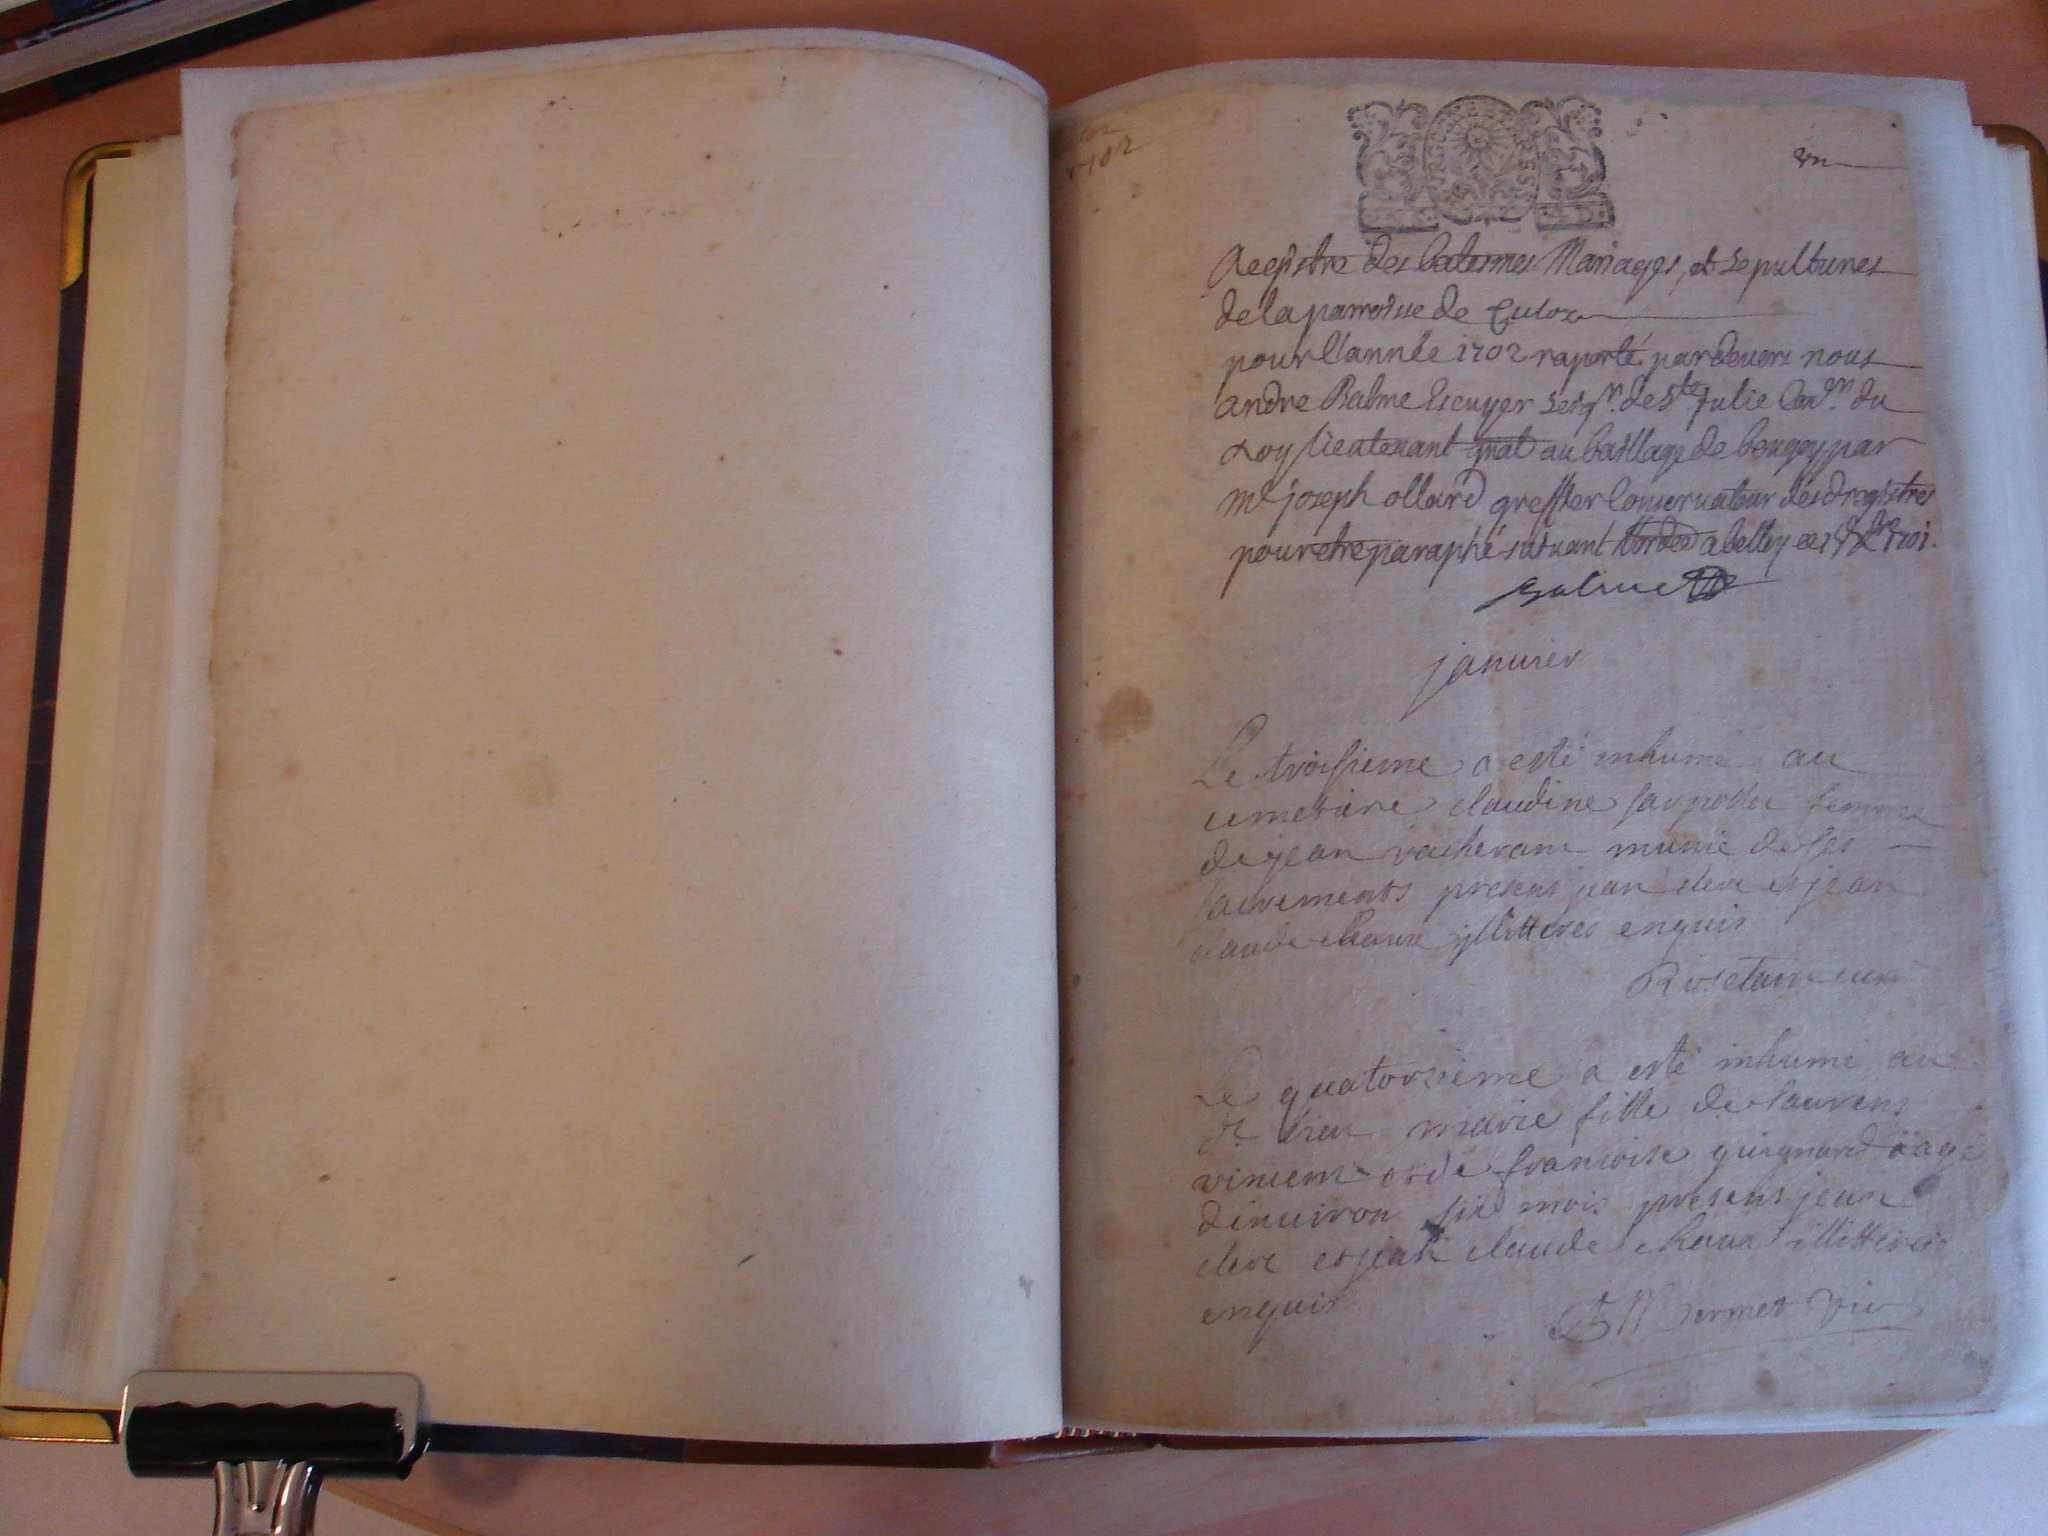 1702
un
Registre des batesmes Mariages, et Sepultures
de la parroisse de Culoz
pour l'année 1702 raporté pardevers nous
andre Balme Escuyer Seigr. de Ste Julie Conr. du
Roy lieutenant gnal au baillage de beugey par
Me joseph ollard greffier Conservateur desd registres
pour etre paraphé suivant l'ordce a belley ce 1701.
Balme
janvier
Le troisieme a esté inhumé au
cimetiere claudine femme
de jean vacherant munie de ses
sacrements presens jean clerc et jean
claude chaux illitteres enquis
Rosetain curé
Le quatorsieme a esté inhumé au
marie fille de laurens
vincent et de francoise guignard aagé
d'inuiron six mois presens jean
clerc et jean claude chaux illitteres
enquis
Bermet vic